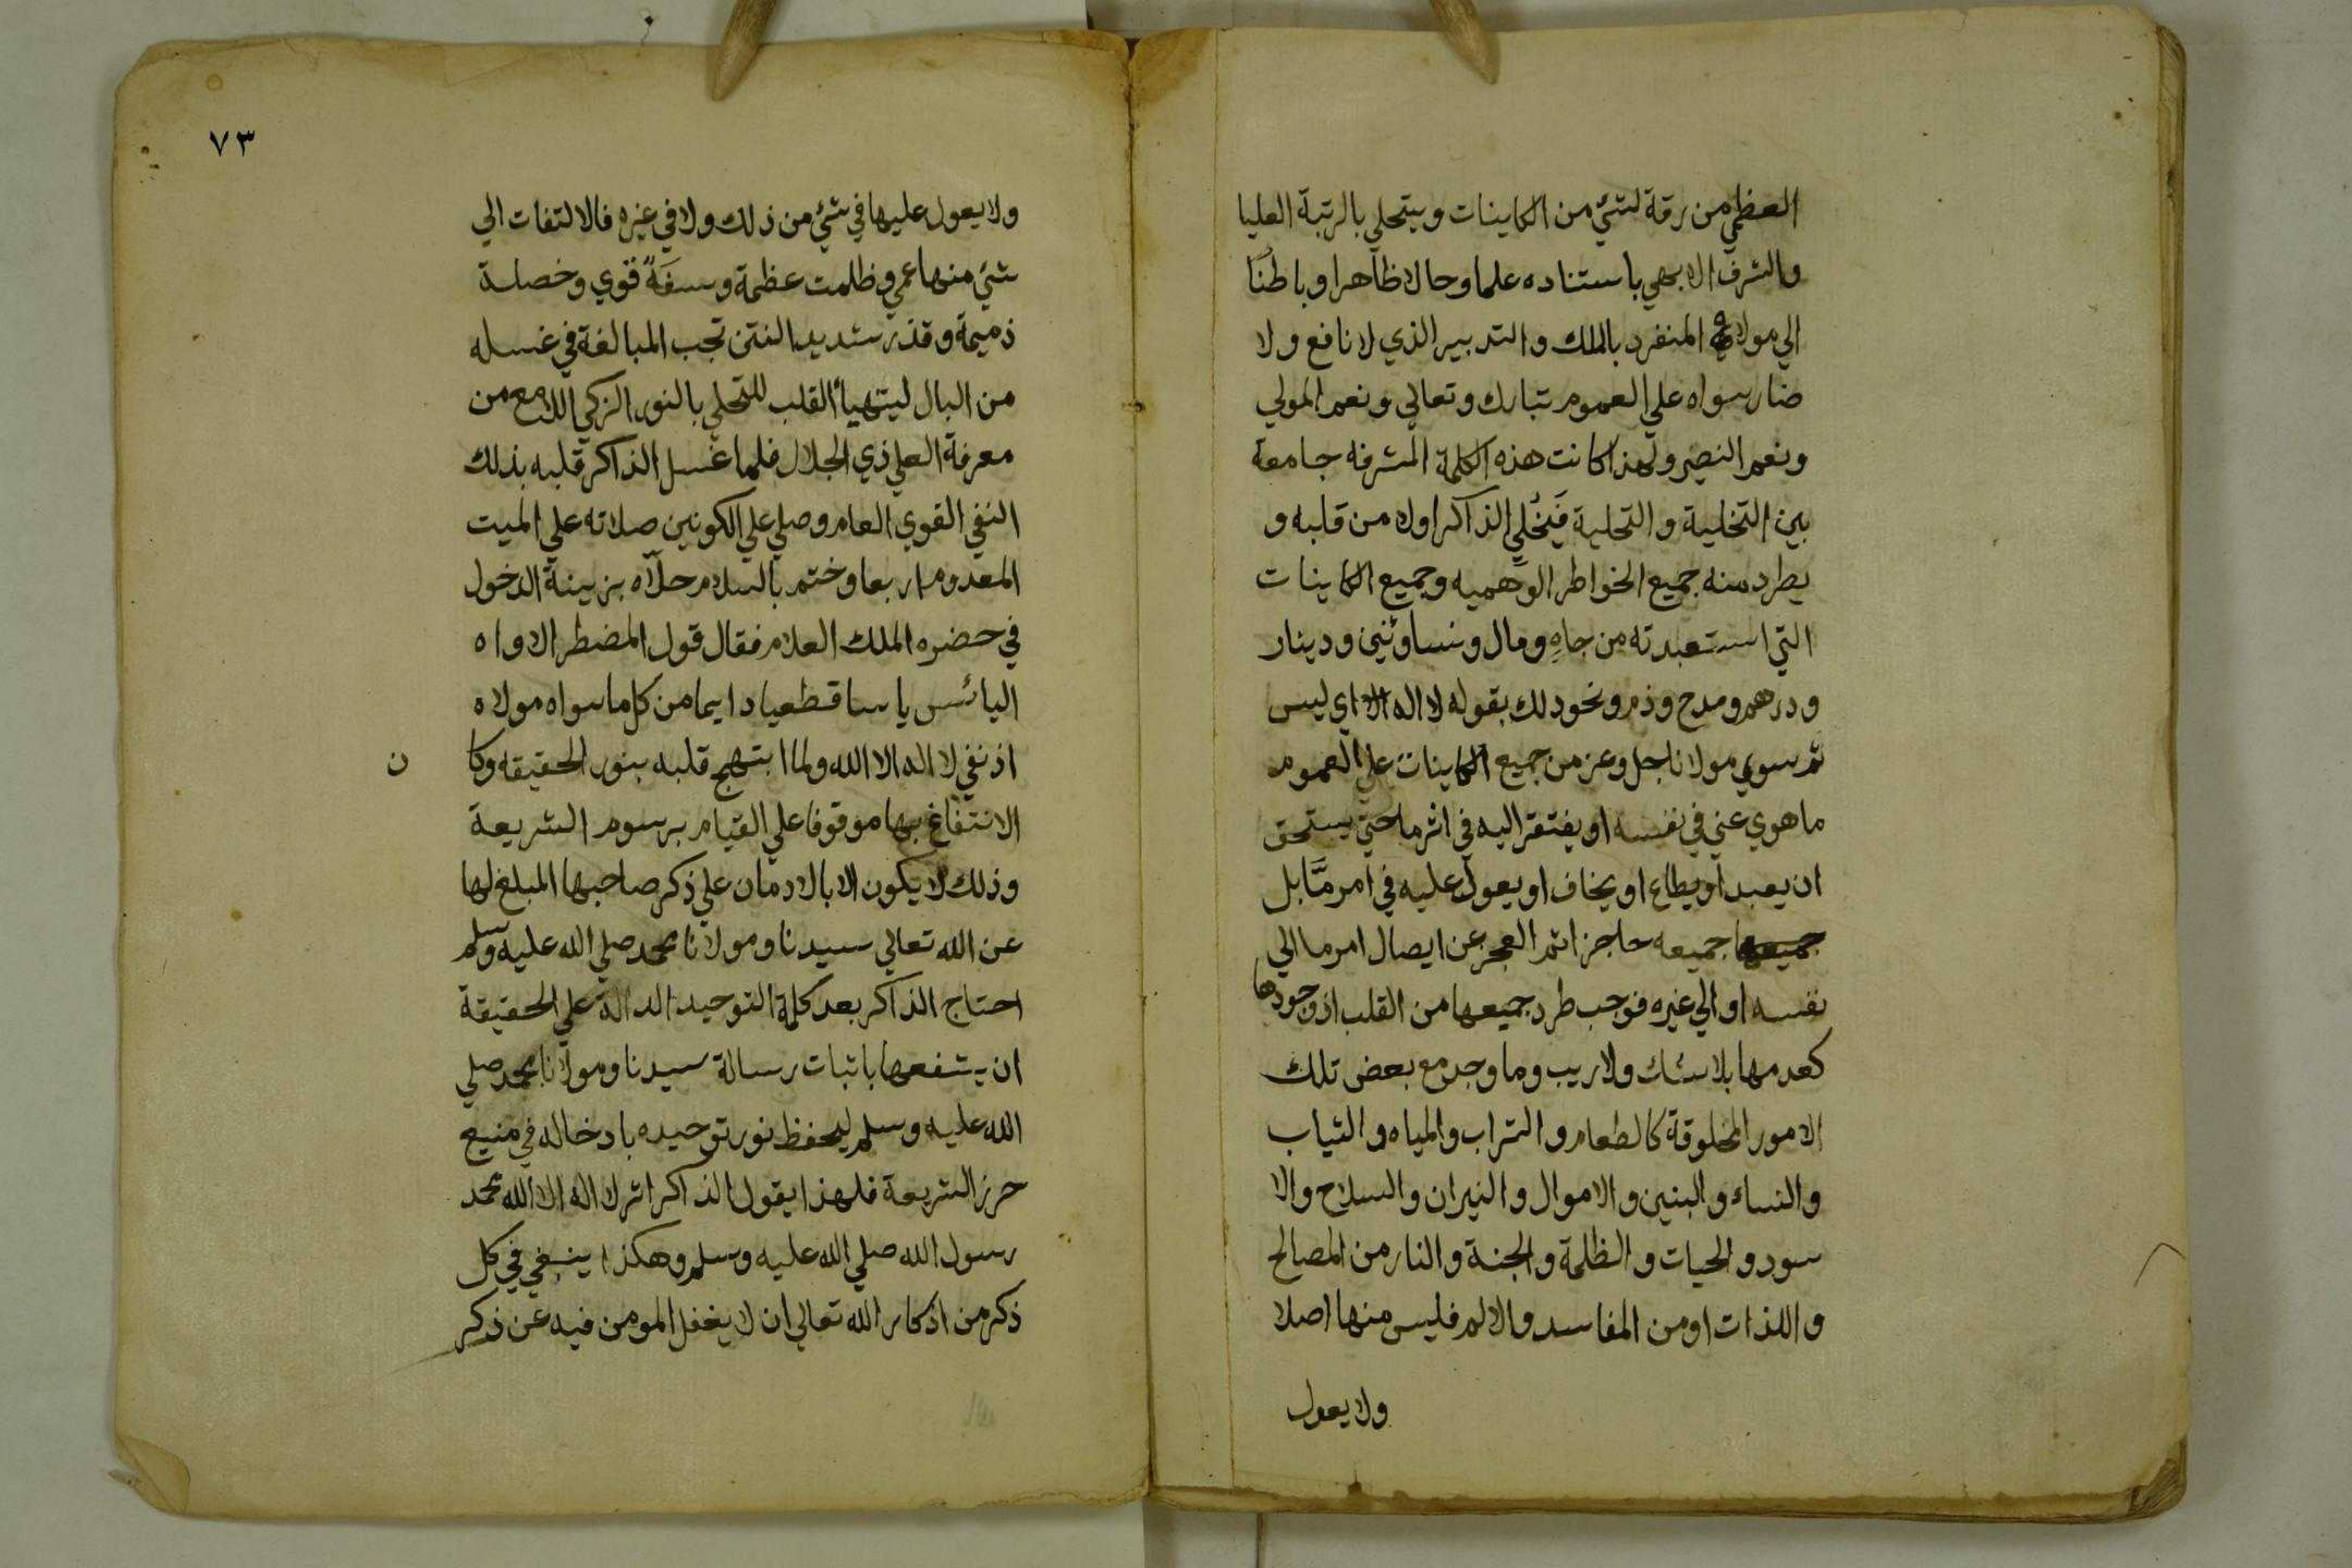 العظمي من رقة لشئ من الكاينات ويتحلي بالرتبة العليا
والشرف الابهي باستناده علما وحالا ظاهرا وباطنًا
الي مولاه المنفرد بالملك والتدبير الذي لا نافع ولا
ضار سواه علي العموم تبارك وتعالي ونعم المولي
ونعم النصير ولهذا كانت هذه الكلمة المشرفه جامعة
بين التخلية والتحلية فيُخَلِّي الذاكر اولا من قلبه و
يطرد منه جميع الخواطر الوهميه وجميع الكاينات
التي استعبدته من جاهِ ومال ونسا وبنين ودينار
ودرهم ومدح وذم ونحو ذلك بقوله لا اله الا اي ليس
ثم سوي مولانا جل وعز من جميع الكاينات علي العموم
ما هوي عني في نفسه او يفتقر اليه في اثر ما حتي يستحق
ان يعبد او يطاع او يخاف او يعول عليه في امر مّا بل
جميعها جميعه حاجز اثم العجز عن ايصال امر ما الي
نفسه او الي غيره فوجب طرد جميعها من القلب اذ وجودها
كعدمها بلا شك ولا ريب وما وجد مع بعض تلك
الامور المخلوقة كالطعام والتراب والمياه والثياب
والنساء والبنين والاموال والنيران والسلاح والا
سود والحيات والظلمة والجنة والنار من المصالح
واللذات او من المفاسد والالم فليس منها اصلا
ولا يعول
٧٣
ولا يعول عليها في شئ من ذلك ولا في غيره فالالتفات الي
شئ منها عمي وظلمت عظمة وسفهً قوي وخصلة
ذميمة وقذر شديد النتن تجب المبالغة في غسله
من البال ليتهيأ القلب للتحلي بالنور الزكي اللامع من
معرفة العلي ذي الجلال فلما غسل الذاكر قلبه بذلك
النفي القوي العام وصلي علي الكونين صلاته علي الميت
المعدوم اربعا وختم بالسلام حلّاه بزينة الدخول
في حضره الملك العلام فقال قول المضطر الاواه
اليائس ياسا قطعيا دايما من كل ما سواه مولاه
اذ نفي لا اله الا الله ولما ابتهج قلبه بنور الحقيقه وكا ن
الانتفاع بها موقوفا علي القيام برسوم الشريعة
وذلك لا يكون الا بالادمان علي ذكر صاحبها المبلغ لها
عن الله تعالي سيدنا ومولانا محمد صلي الله عليه وسلم
احتاج الذاكر بعد كلمة التوحيد الدالة علي الحقيقة
ان يشفعها باثبات رسالة سيدنا ومولانا محمد صلي
الله عليه وسلم ليحفظ نور توحيده بادخاله في منيع
حرز الشريعة فلهذا يقول الذاكر اثر لا اله الا الله محمد
رسول الله صلي الله عليه وسلم وهكذا ينبغي في كل
ذكر من اذكار الله تعالي ان لا يغفل المومن فيه عن ذكر